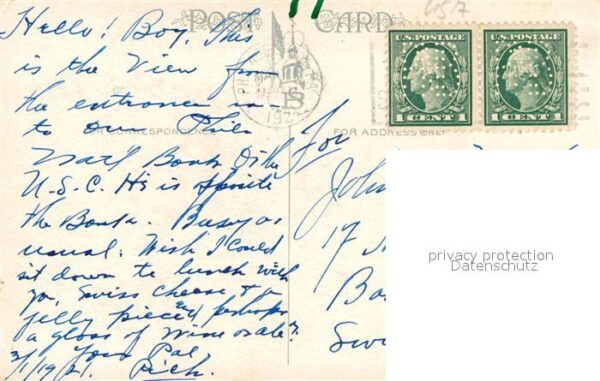 POST CARD
Hello! Boy. This
is the View from
the entrance in-
to our Phila
Nat'l Bank & the
U.S.C. Hs is opposite
the Bank. Busy as
usual. Wish I could
sit down to lunch with
you, Swiss cheese & a
jelly piece and perhaps
a glass of wine or ale?
Your Pal
3/1/1921. Rich.
CORRESPONDENCE
FOR ADDRESS ONLY
U.S. POSTAGE
1 CENT 1
U.S. POSTAGE
1 CENT 1
For
John
17
Ba
Swi
privacy protection
Datenschutz